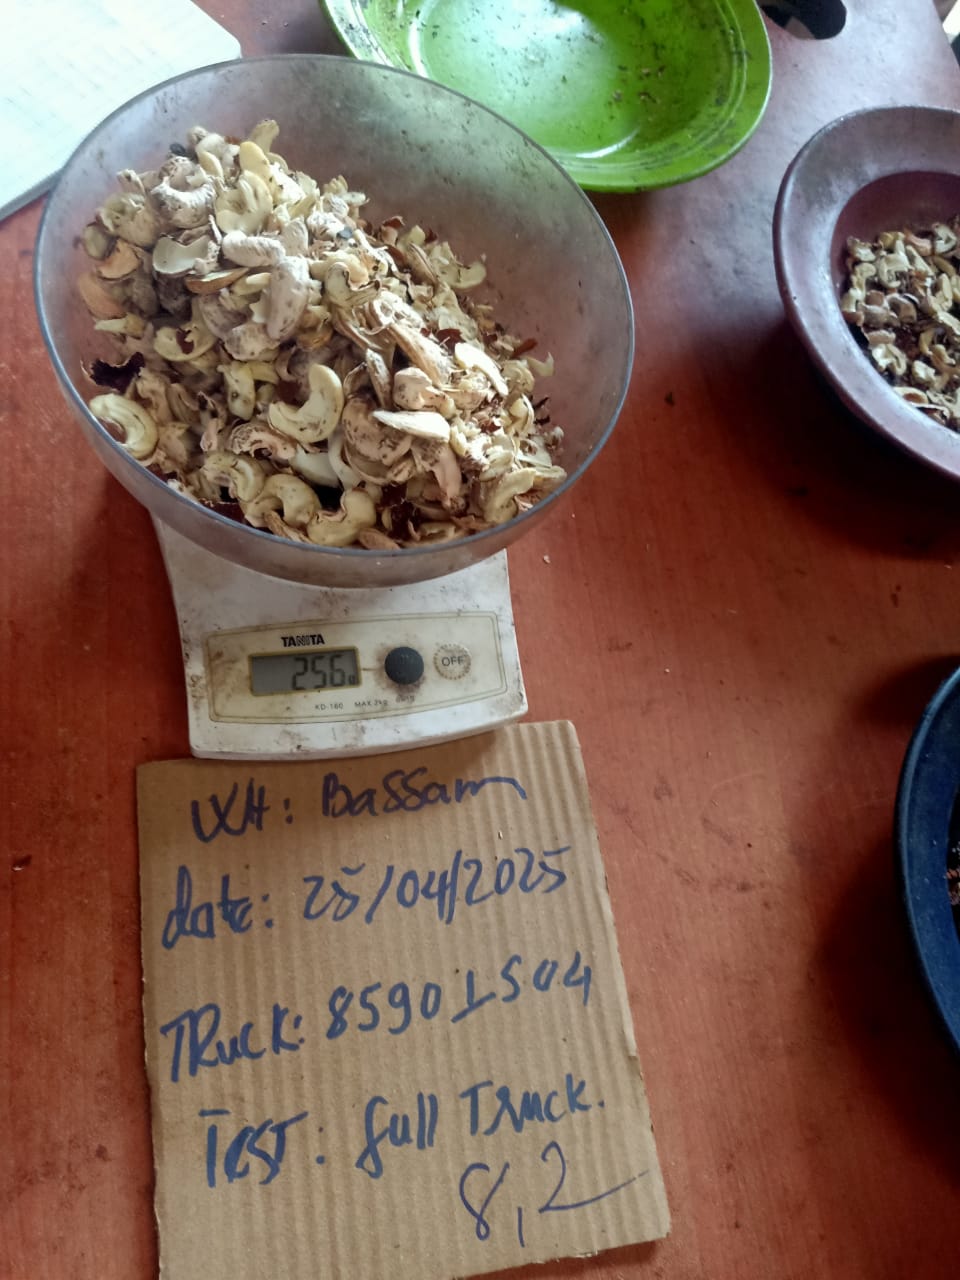 TANITA
256g
OFF
KD-160 MAX 2kg
WH: Bassam
date: 25/04/2025
TRuck: 8590 1S04
TEST: full Truck.
8,2